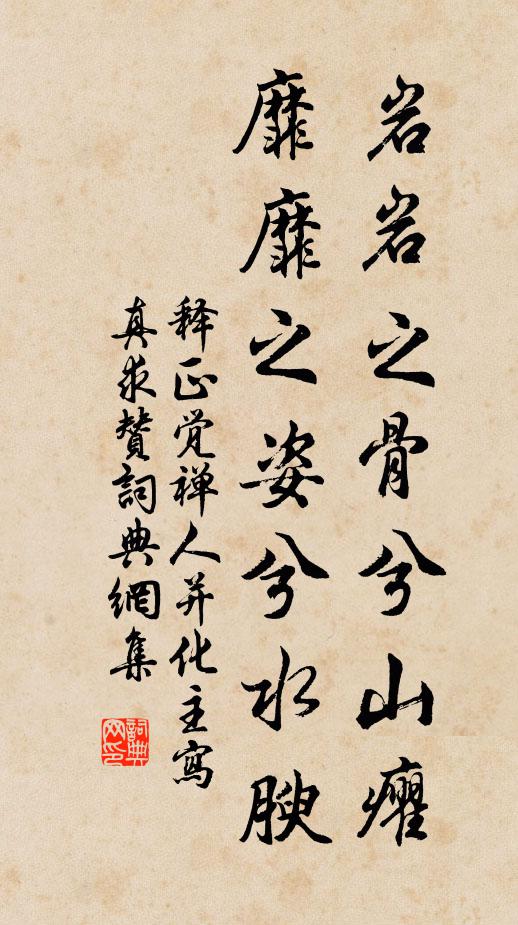 岩岩之骨兮山癯
靡靡之姿兮水腴
释正觉禅人并化主寫
真求贊詞典網集
詞典
网印